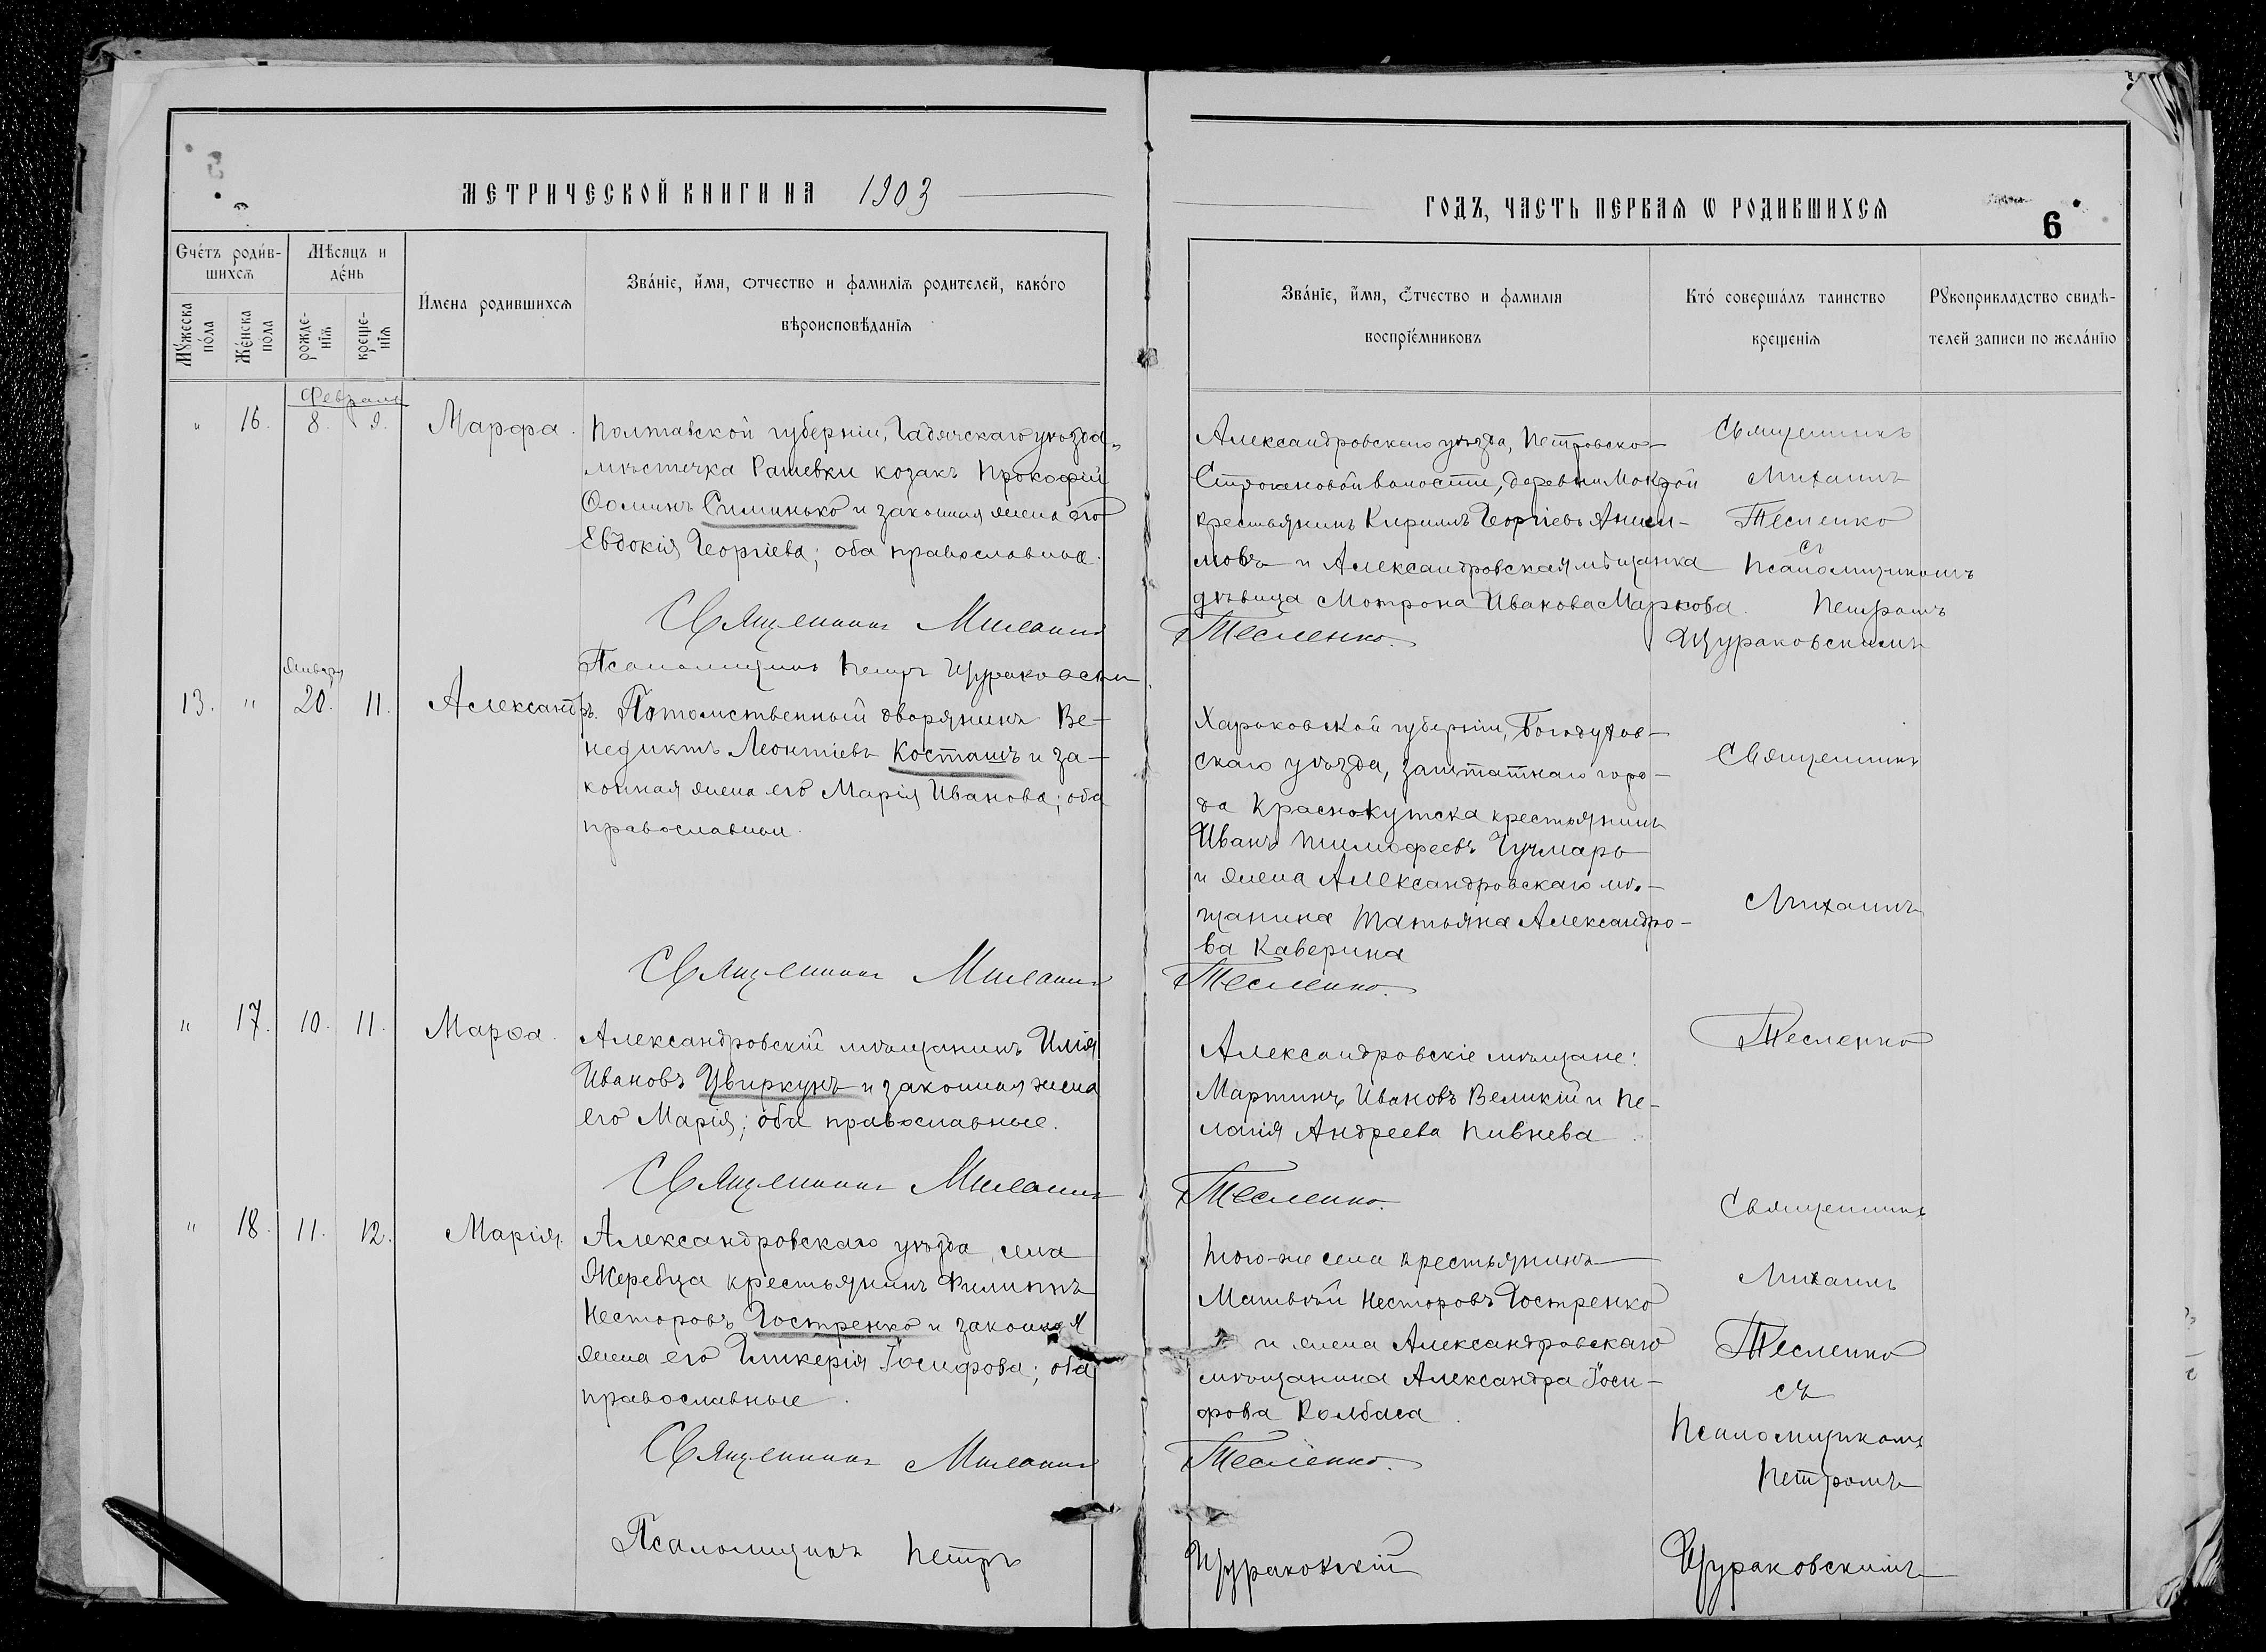 МЕТРИЧЕСКОЙ КНИГИ НА 1903
Счётъ родив-
шихся
Мѣсяцъ и
день
Мужеска
пола
Женска
пола
рожде-
нія
креще-
нія
Имена родившихся
Званіе, имя, отчество и фамилія родителей, какого
вѣроисповѣданія
Февраль
" 16. 8. 9. Марфа. Полтавской губерніи, Гадячскаго уѣзда,
мѣстечка Рашевки козакъ Прокофій
Ѳоминъ Симинько и законная жена его
Евдокія Георгіева; оба православные.
Священникъ Михаилъ
Псаломщикъ Петръ Щураковскій
Января
13. " 20. 11. Александръ. Потомственный дворянинъ Ве-
недиктъ Леонтіевъ Косташъ и за-
конная жена его Марія Иванова; оба
православные.
Священникъ Михаилъ
" 17. 10. 11. Марѳа. Александровскій мѣщанинъ Илія
Ивановъ Цвиркунъ и законная жена
его Марія; оба православные.
Священникъ Михаилъ
" 18. 11. 12. Марія. Александровскаго уѣзда, села
Жеребца крестьянинъ Филиппъ
Несторовъ Гостренко и законная
жена его Гликерія Іосифова; оба
православные.
Священникъ Михаилъ
Псаломщикъ Петръ
ГОДЪ, ЧАСТЬ ПЕРВАЯ Ѡ РОДИВШИХСЯ
6
Званіе, имя, отчество и фамилія
воспріемниковъ
Кто совершалъ таинство
крещенія
Рукоприкладство свидѣ-
телей записи по желанію
Александровскаго уѣзда, Петровско-
волости, деревни Мокрой
крестьянинъ Кириллъ Георгіевъ Аниси-
мовъ и Александровская мѣщанка
дѣвица Мотрона Иванова Маркова.
Тесленко.
Священникъ
Михаилъ
Тесленко
съ
Псаломщикомъ
Петромъ
Щураковскимъ
Харьковской губерніи, Богодухов-
скаго уѣзда, заштатнаго горо-
да Краснокутска крестьянинъ
Иванъ Тимофеевъ Гучмарь
и жена Александровскаго мѣ-
щанина Татьяна Александро-
ва Каверина
Тесленко.
Священникъ
Михаилъ
Тесленко
Александровскіе мѣщане:
Мартинъ Ивановъ Великій и Пе-
лагія Андреева Пивнева.
Тесленко.
Того-же села крестьянинъ
Матвѣй Несторовъ Гостренко
и жена Александровскаго
мѣщанина Александра Іоси-
фова Колбаса.
Тесленко.
Щураковскій
Священникъ
Михаилъ
Тесленко
съ
Псаломщикомъ
Петромъ
Щураковскимъ